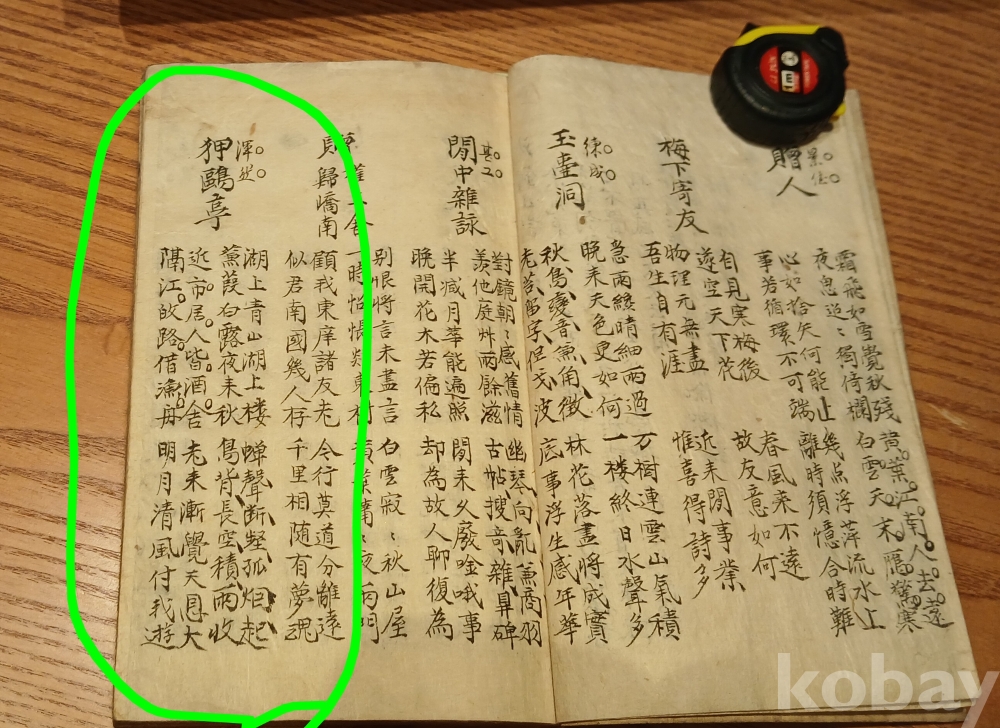 贈人
霜飛如雪覺秋殘 黃葉江南人去遠
夜思迢〻獨倚欄 白雲天末隔驚寒
心如拾矢何能止 幾点浮萍流水上
事若循環不可端 離時須憶合時難
梅下寄友
自見寒梅後 春風來不遠
遂空天下花 故友意如何
物理元無盡 近來間事業
吾生自有涯 惟喜得詩多
練成
玉壺洞
急雨纔晴細雨過 万樹連雲山氣積
晚來天色更如何 一楼終日水聲多
秋鳥變音兼角徵 林花落盡將成實
老苔留字但戈波 底事浮生感年華
閒中雜詠
對鏡朝〻感舊情 幽琴向亂兼商羽
羨他庭艸雨餘滋 古帖搜奇雜鼻碑
半減月華能遍照 閒來久廢唫哦事
晚開花木若偏私 却為故人聊復為
歸嶠南
別恨將言未盡言 白雲寂〻秋山屋
一時怊悵東村 黃葉蕭〻夜雨門
顧我東庠諸友老 今行莫道分離遠
似君南國幾人存 千里相随有夢魂
狎鷗亭
湖上青山湖上楼 蝉聲断壑孤烟起
蒹葭白露夜來秋 鳥背長空積兩收
近市居人皆酒舍 老來漸覺天恩大
隔江故路借漁舟 明月清風付我遊
kobay